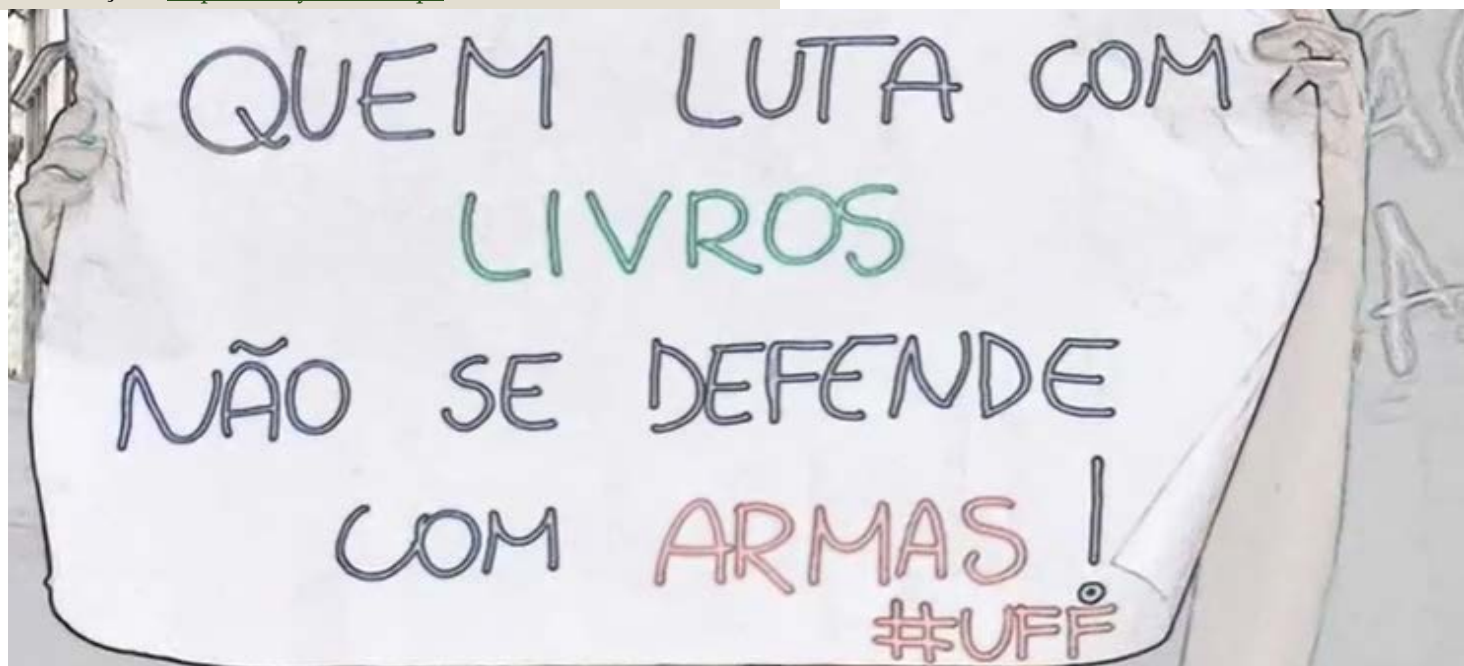 QUEM LUTA COM
LIVROS
NÃO SE DEFENDE
COM ARMAS!
#UFF